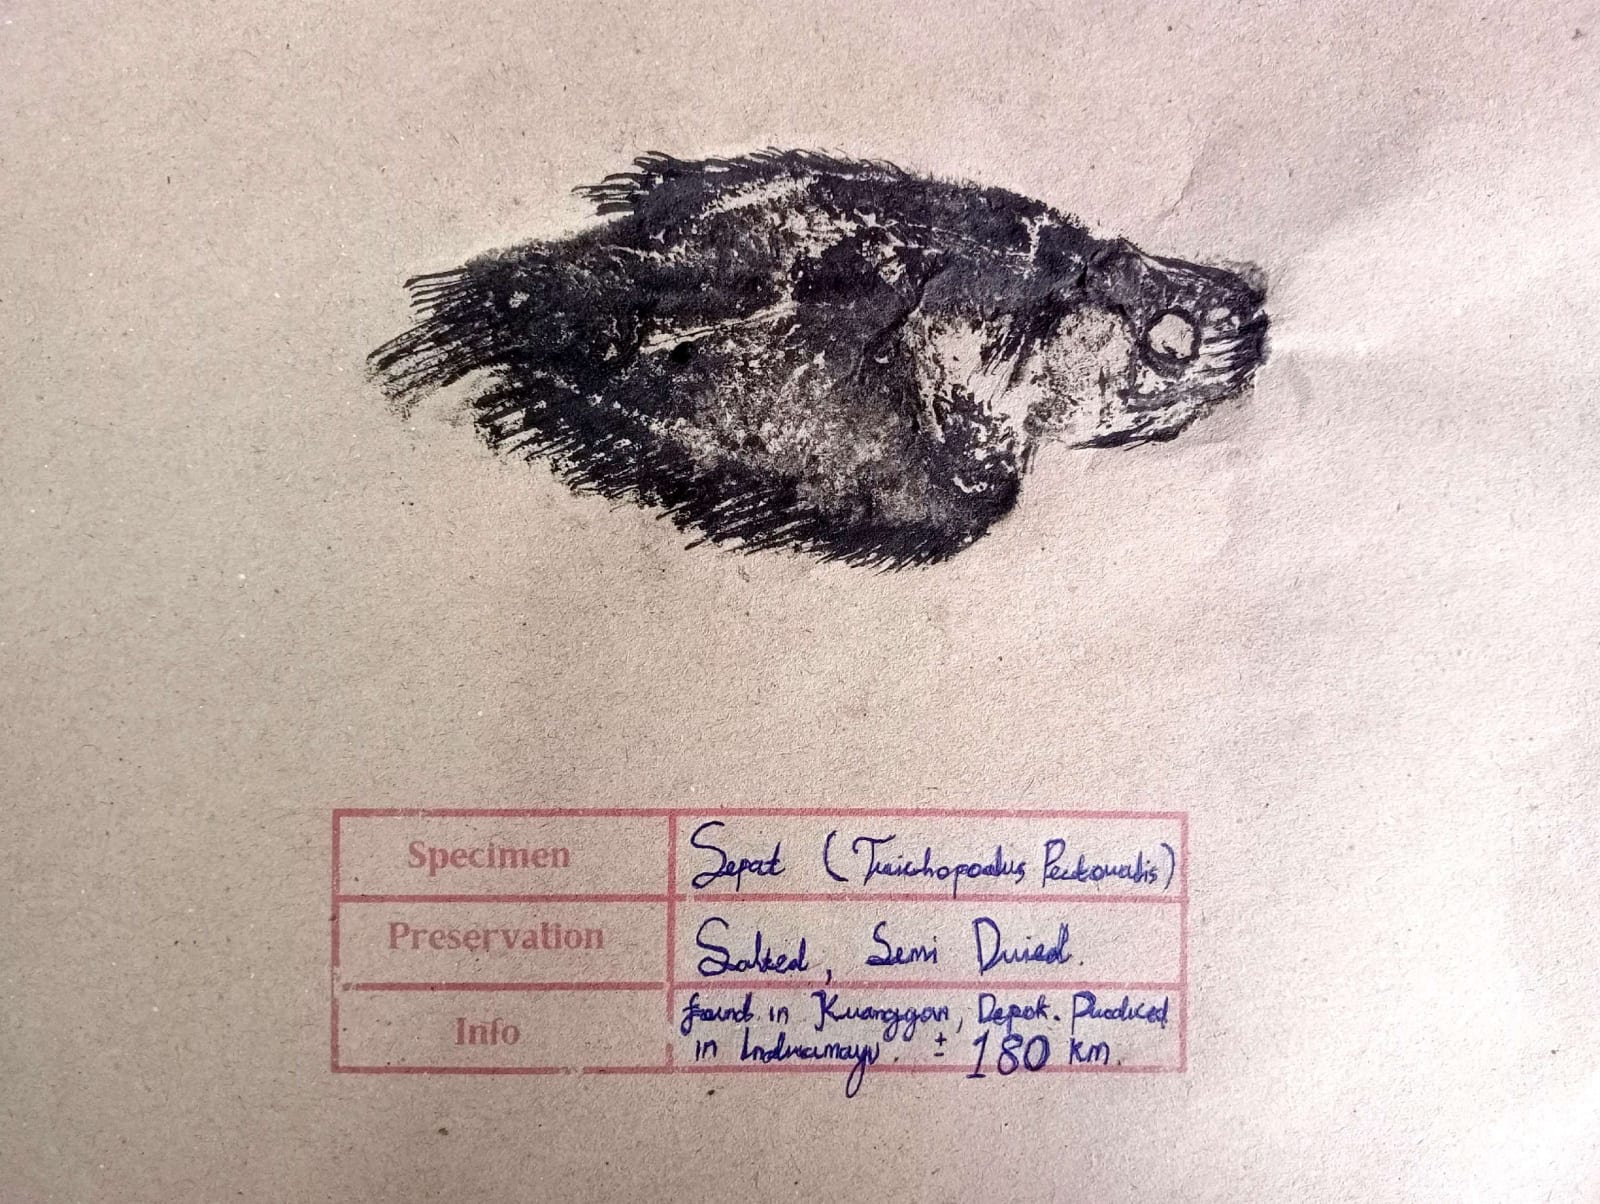 Specimen
Sepat (Trichopodus Pectoralis)
Preservation
Salted, Semi Dried.
Info
found in Kranggan, Depok. Produced
in Indramayu. ± 180 km.